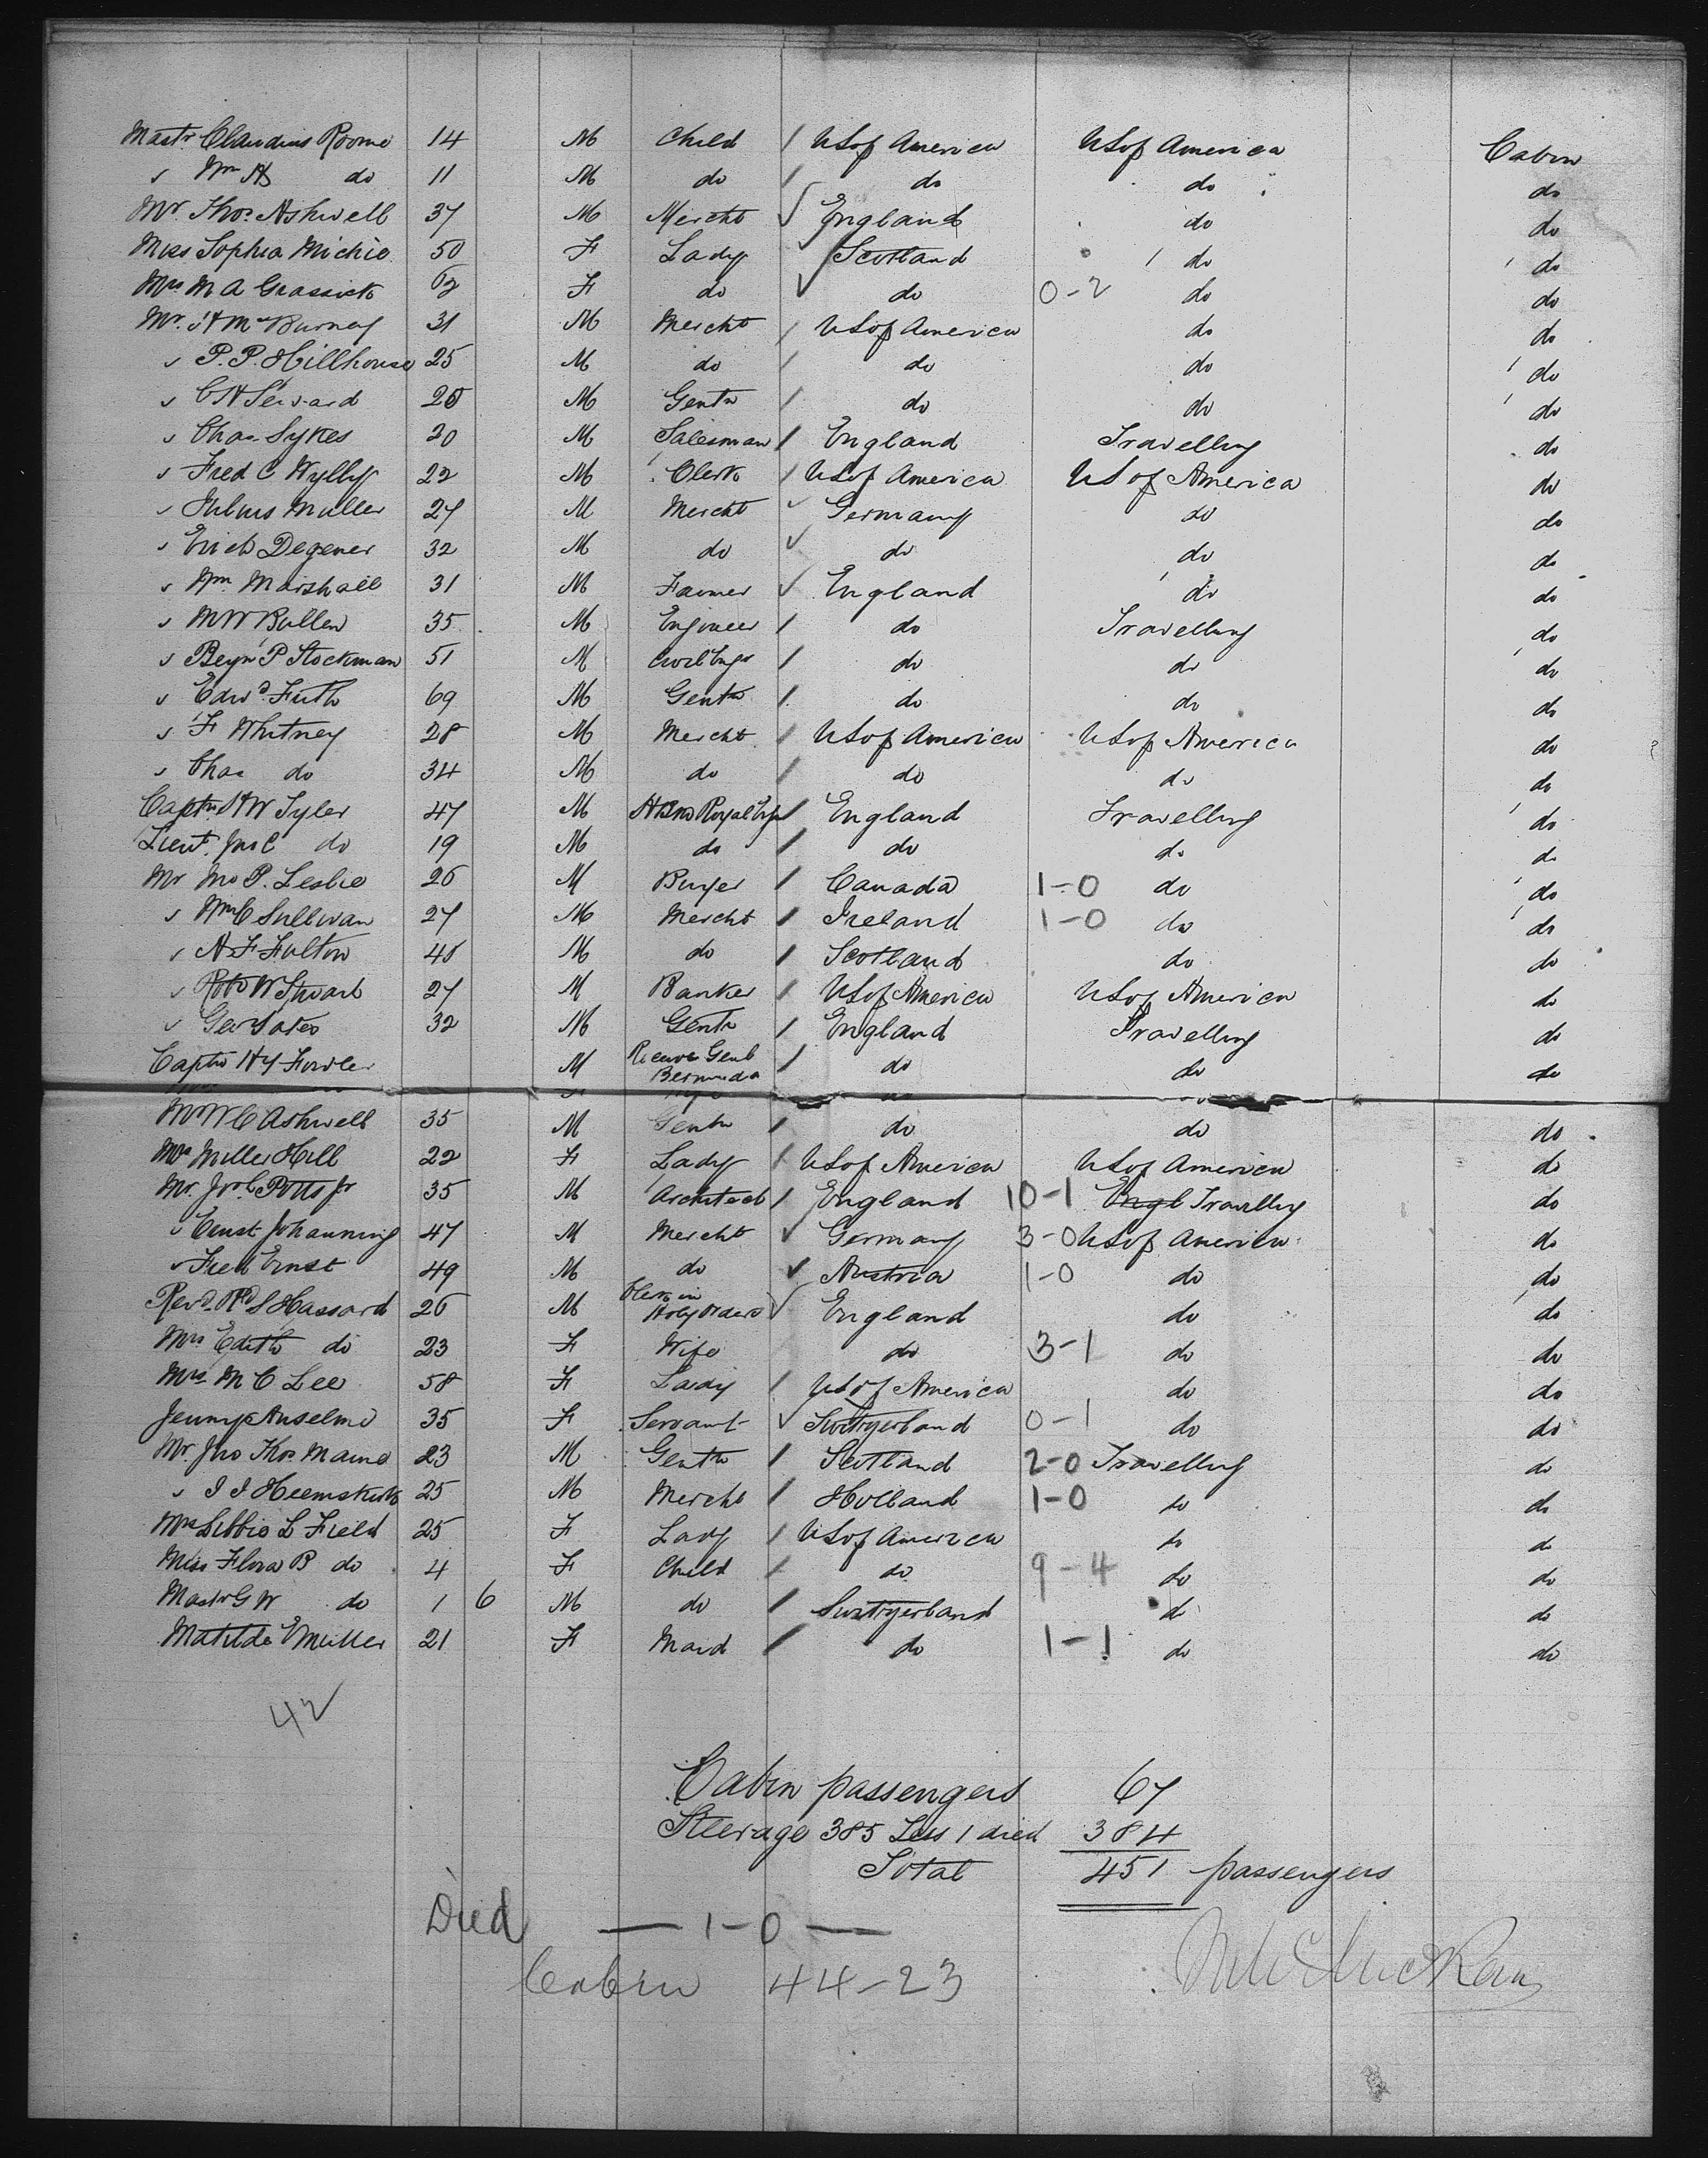 Mastr Claudius Roome 14 M Child / US of America US of America Cabin
" Wm H do 11 M do / do do do
Mr Thos. Ashwell 37 M Mercht ✓ England do do
Miss Sophia Michie 50 F Lady ✓ Scotland do do
Mrs M A Grassick 62 F do ✓ do 0-2 do do
Mr. McBurney 31 M Mercht / US of America do do
" P. P. Hillhouse 25 M do / do do do
" C H Seward M Gentn / do do do
" Chas Sykes 20 M Salesman / England Travelling do
" Fred C Wylly 22 M Clerk / US of America US of America do
" Julius Muller 27 M Mercht ✓ Germany do do
" Erich Degener 32 M do ✓ do do do
" Wm Marshall 31 M Farmer ✓ England do do
" M W Bullen 35 M Engineer / do Travelling do
" Benjn P Stockman 51 M Civil Engr / do do do
" Edwd Firth 69 M Gentn / do do do
" F Whitney 28 M Mercht / US of America US of America do
" Chas do 34 M do / do do do
Captn H W Tyler 47 M Royal / England Travelling do
Lieut. Jno C do 19 M do / do do do
Mr Jno P. Leslie 26 M Buyer / Canada 1-0 do do
" Wm C Sullivan 27 M Mercht / Ireland 1-0 do do
" A F Fulton M do / Scotland do do
" Robt W Stuart 27 M Banker / US of America US of America do
" Geo 32 M Gentn / England Travelling do
Captn Hy Fowler M Receivr Genl / do do do
Bermuda
Mr W C Ashwell 35 M Gentn / do do do
Mrs Miller Hill 22 F Lady / US of America US of America do
Mr. Jno C Potts Jr 35 M Architect / England 10-1 Engl Travelling do
" Ernst Johanning 47 M Mercht ✓ Germany 3-0 US of America do
" Fred Ernst 49 M do ✓ Austria 1-0 do do
Revd. Rd S Hassard 26 M Clerk in Holy Orders ✓ England do do
Mrs Edith do 23 F Wife do 3-1 do do
Mrs M C Lee 58 F Lady / US of America do do
Jenny Anselme 35 F Servant ✓ Switzerland 0-1 do do
Mr. Jno Thos. Maine 23 M Gentn / Scotland 2-0 Travelling do
" J J Heemskerk 25 M Mercht / Holland 1-0 do do
Mrs Libbie L Field 25 F Lady / US of America do do
Miss Flora B do 4 F Child / do 9-4 do do
Mastr G W do 1 6 M do / Switzerland do do
Matilda E Muller 21 F Maid / do 1-1 do do
42
Cabin passengers 67
Steerage 385 Less 1 died 384
Total 451 passengers
Died — 1-0 —
Cabin 44-23